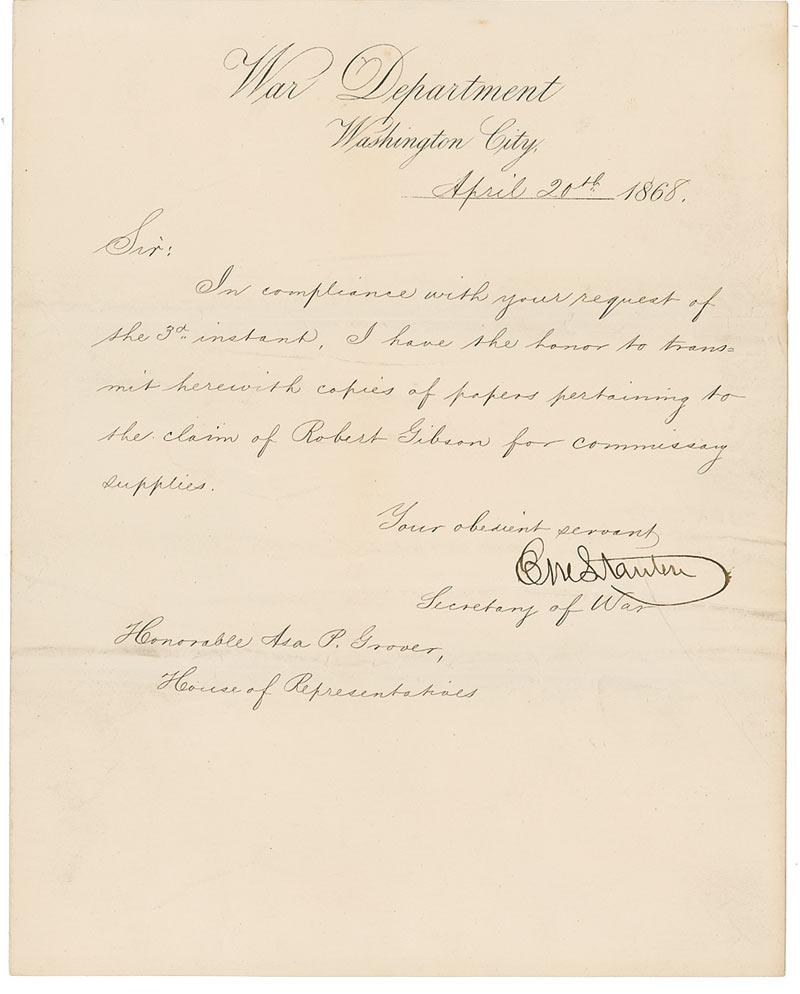 War Department
Washington City,
April 20th 1868.
Sir:
In compliance with your request of
the 3d instant, I have the honor to trans=
mit herewith copies of papers pertaining to
the claim of Robert Gibson for commissary
supplies.
Your obedient servant
Edwin M Stanton
Secretary of War
Honorable Asa P. Grover,
House of Representatives